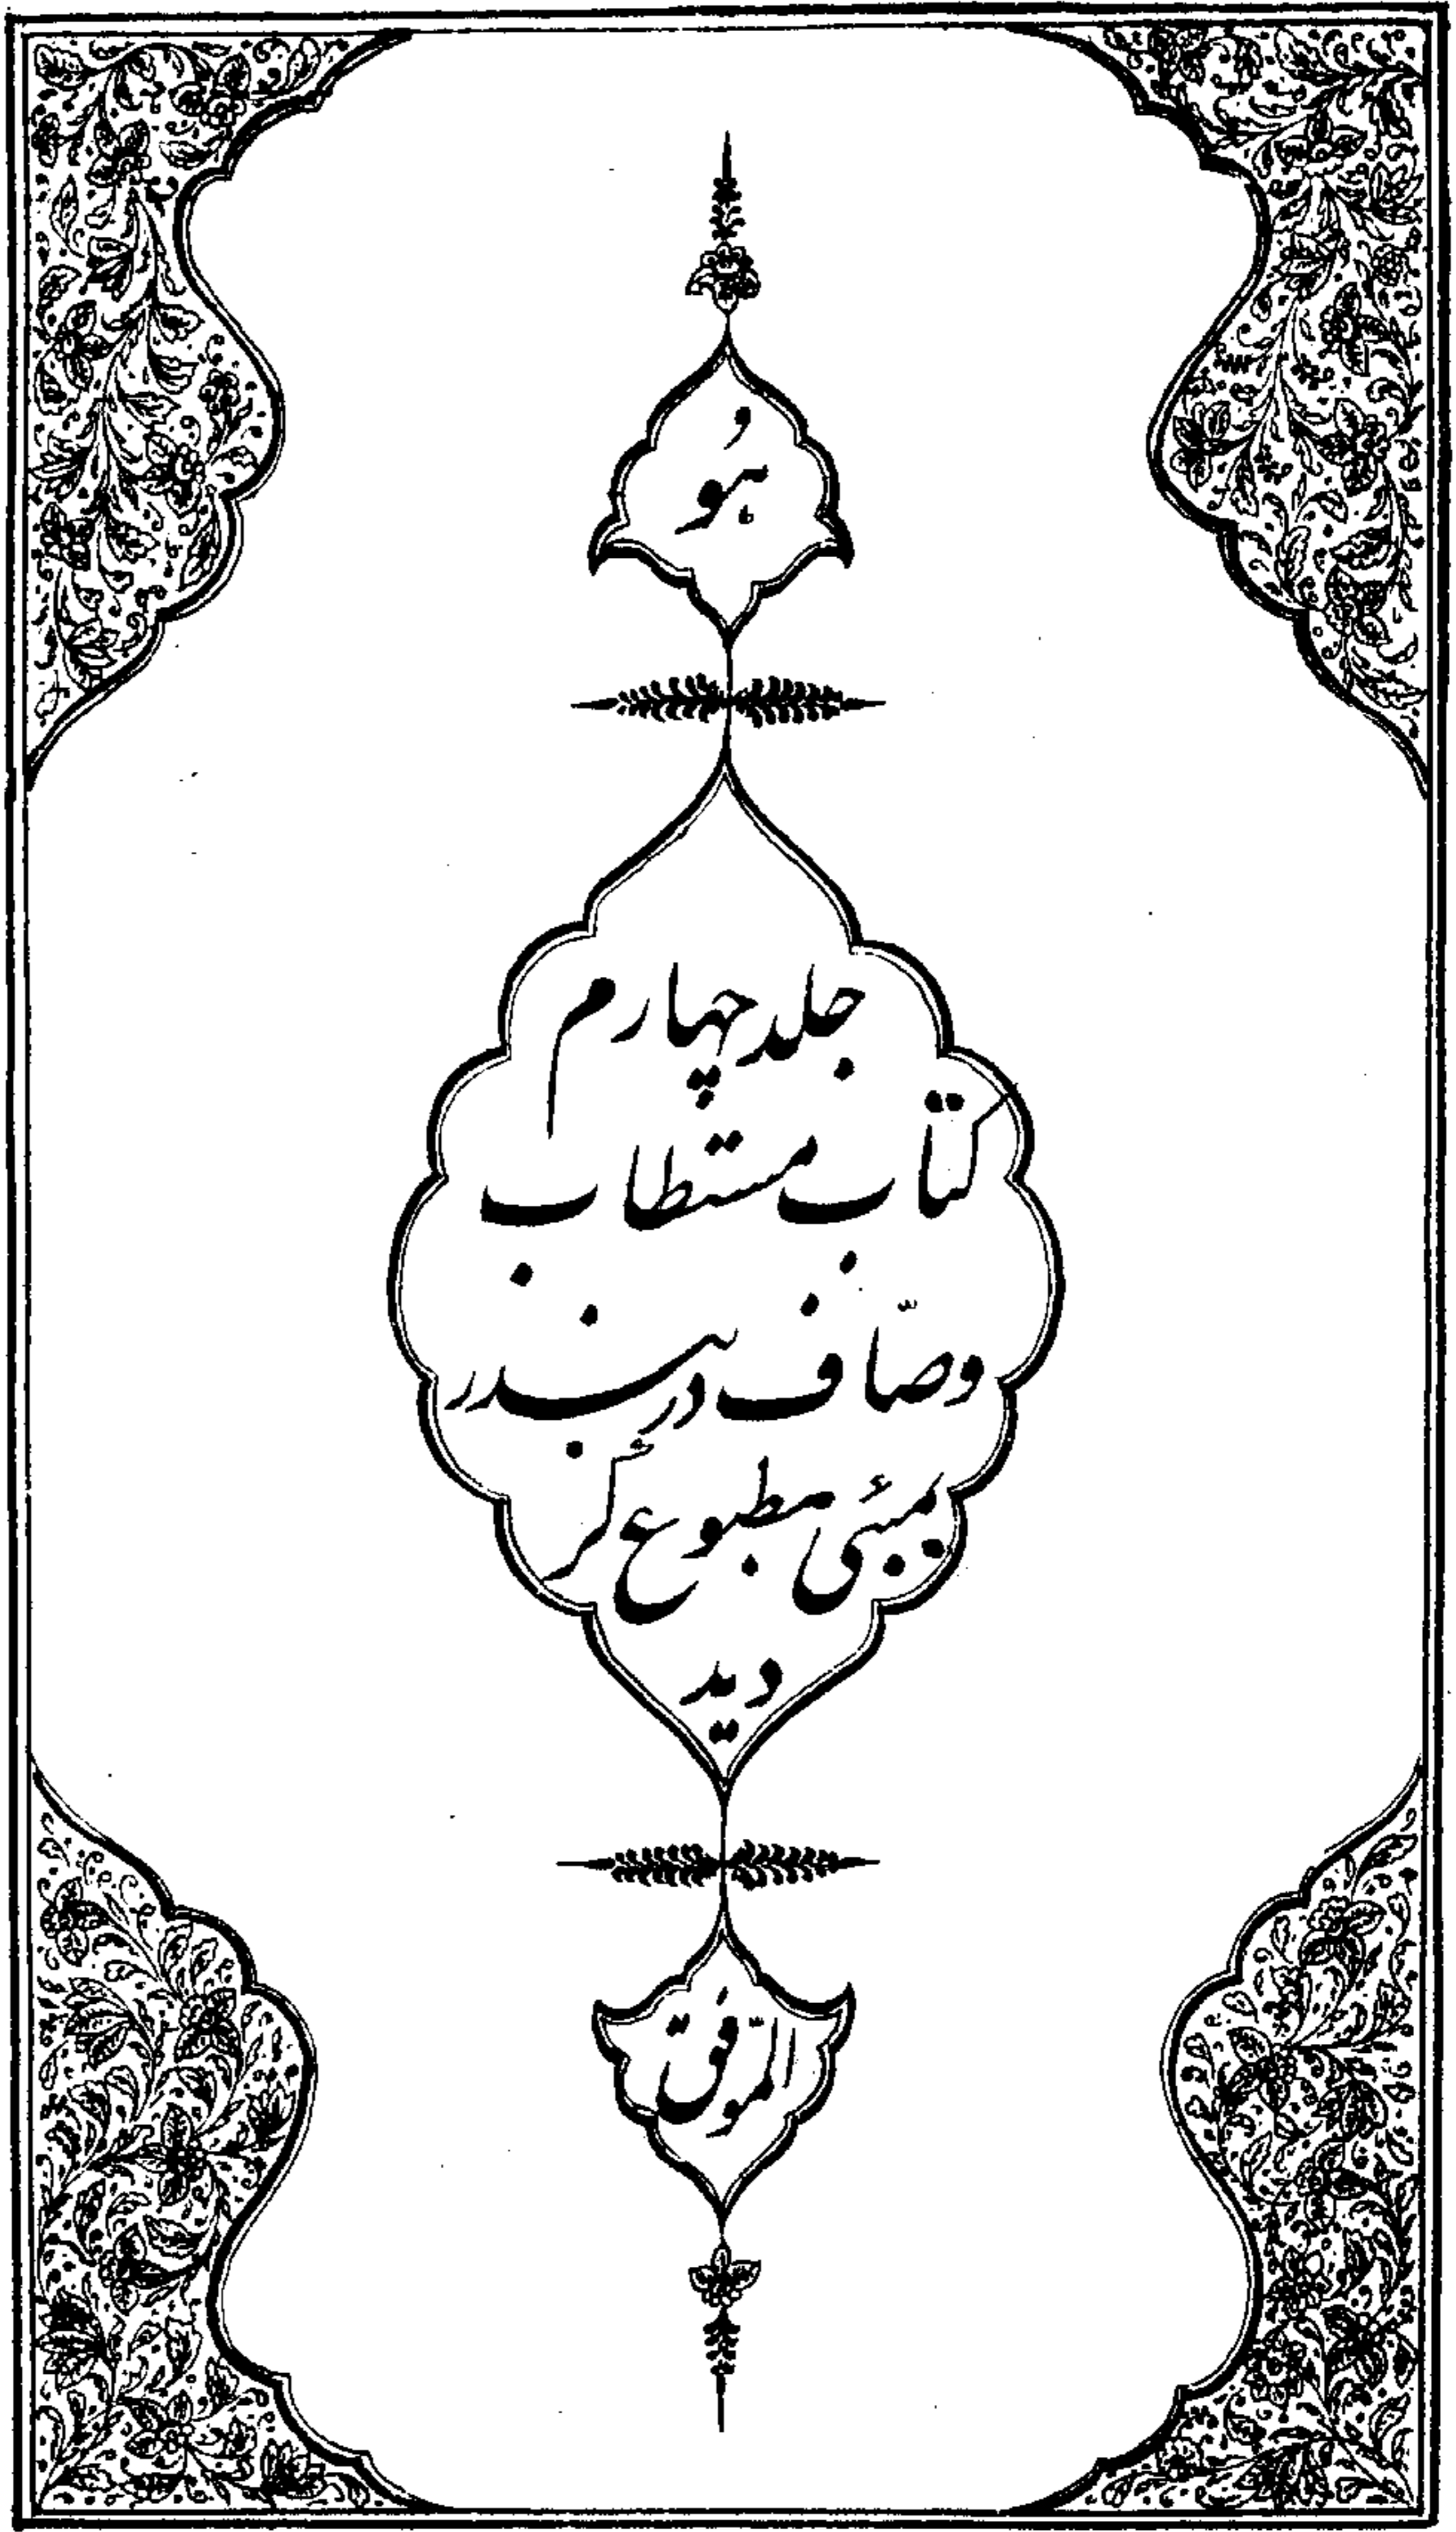 هُو
جلد چهارم
کتاب مستطاب
وصّاف در بندر
بمبئی مطبوع گر
دید
الموّفق